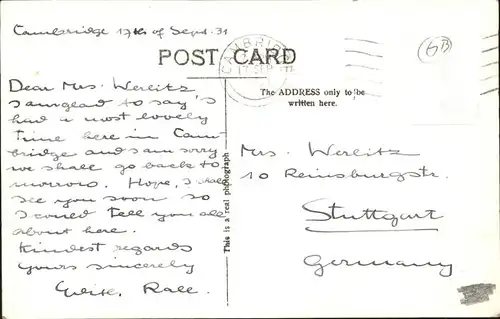 Cambridge 17th of Sept. 31
POST CARD
CAMBRIDGE
(GB)
The ADDRESS only to be
written here.
Dear Mrs. Werlitz
I am glad to say I
had a most lovely
time here in Cam-
bridge and I am sorry
we shall go back to
morrow. Hope, I shall
see you soon so
I could tell you all
about here.
Kindest regards
yours sincerely
This is a real photograph
Mrs. Werlitz
10 Reinsburgstr.
Stuttgart
Germany